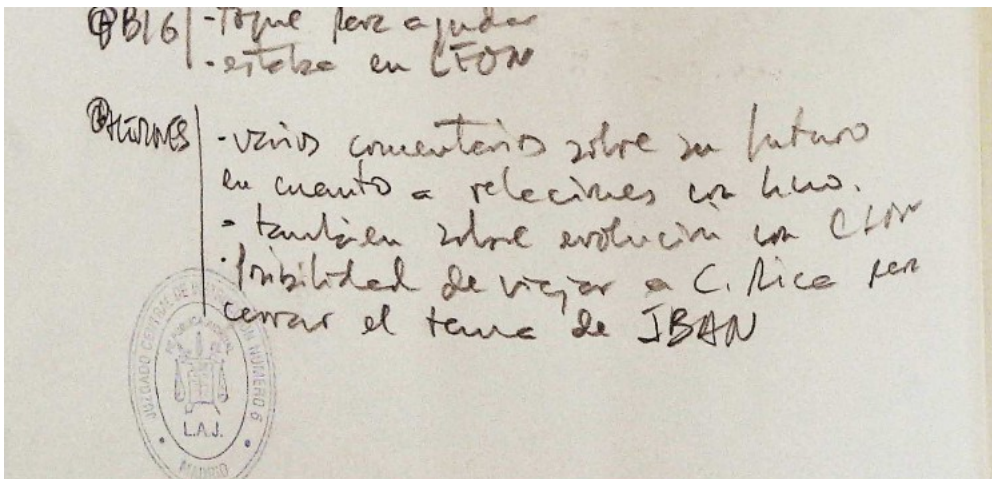 BIG - Toque para ayudar
- estaba en LEON
- varios comentarios sobre su futuro
en cuanto a relaciones con
- también sobre evolución con
- posibilidad de viajar a C. Rica para
cerrar el tema de IBAN
JUZGADO CENTRAL DE INSTRUCCIÓN NUMERO 6
L.A.J.
MADRID